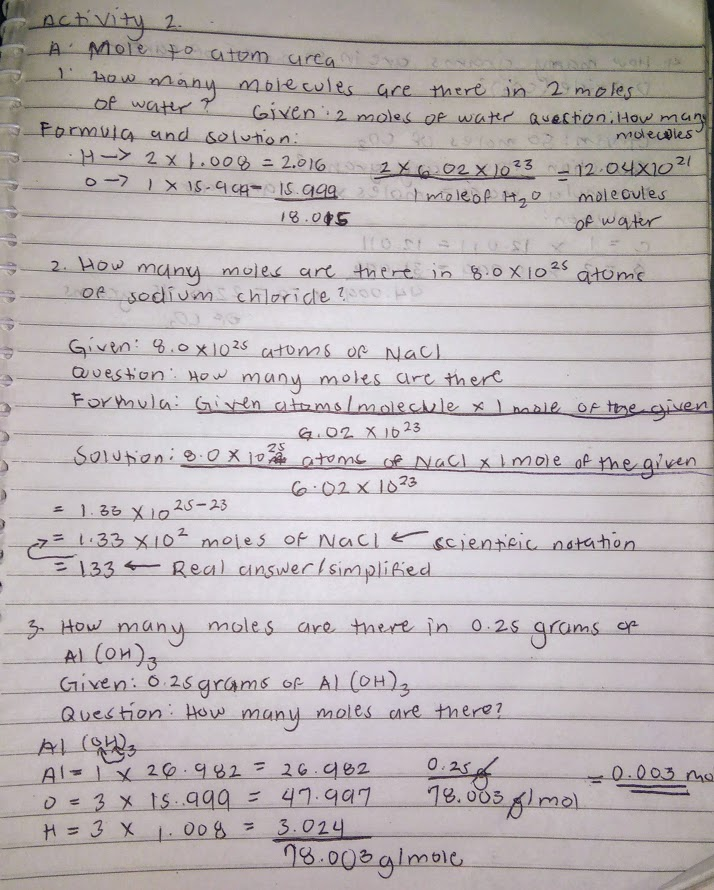 Activity 2.
A. Mole to atom area
1. How many molecules are there in 2 moles
of water? Given: 2 moles of water Question: How many
molecules
Formula and solution:
H → 2 x 1.008 = 2.016 2 x 6.02 x 10^23 = 12.04 x 10^21
O → 1 x 15.999 = 15.999 1 mole of H2O molecules
18.015 of water
2. How many moles are there in 8.0 x 10^25 atoms
of sodium chloride?
Given: 8.0 x 10^25 atoms of NaCl
Question: How many moles are there
Formula: Given atoms/molecule x 1 mole of the given
6.02 x 10^23
Solution: 8.0 x 10^25 atoms of NaCl x 1 mole of the given
6.02 x 10^23
= 1.33 x 10^25-23
= 1.33 x 10^2 moles of NaCl ← scientific notation
= 133 ← Real answer/simplified
3. How many moles are there in 0.25 grams of
Al(OH)3
Given: 0.25 grams of Al(OH)3
Question: How many moles are there?
Al(OH)3
Al = 1 x 26.982 = 26.982 0.25 g = 0.003 mo
O = 3 x 15.999 = 47.997 78.003 g/mol
H = 3 x 1.008 = 3.024
78.003 g/mole